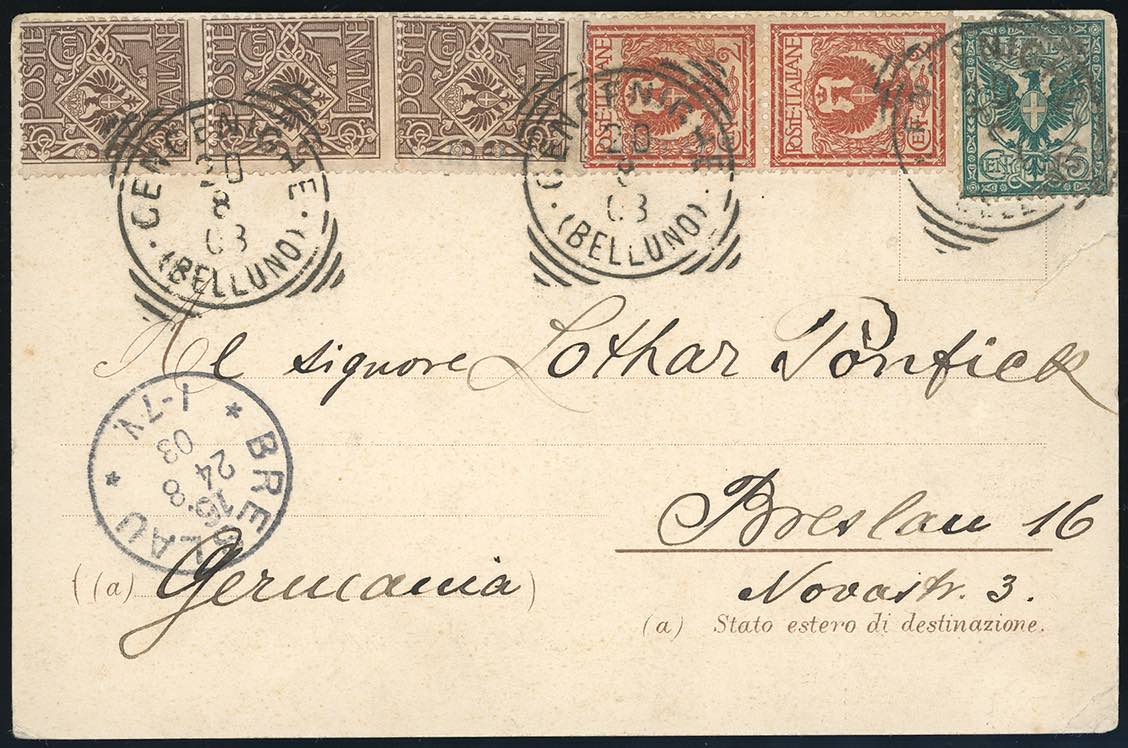 POSTE ITALIANE 1 Cent
POSTE ITALIANE Cent 1
POSTE ITALIANE Cent 1
POSTE ITALIANE
POSTE ITALIANE CENT
CENT 5
CENCENIGHE
20
8
03
(BELLUNO)
CENCENIGHE
20
8
03
(BELLUNO)
Al signore Lothar Ponfick
BRESLAU
24
8
03
1-7N.
Breslau 16
(a) Germania
Novastr. 3.
(a) Stato estero di destinazione.